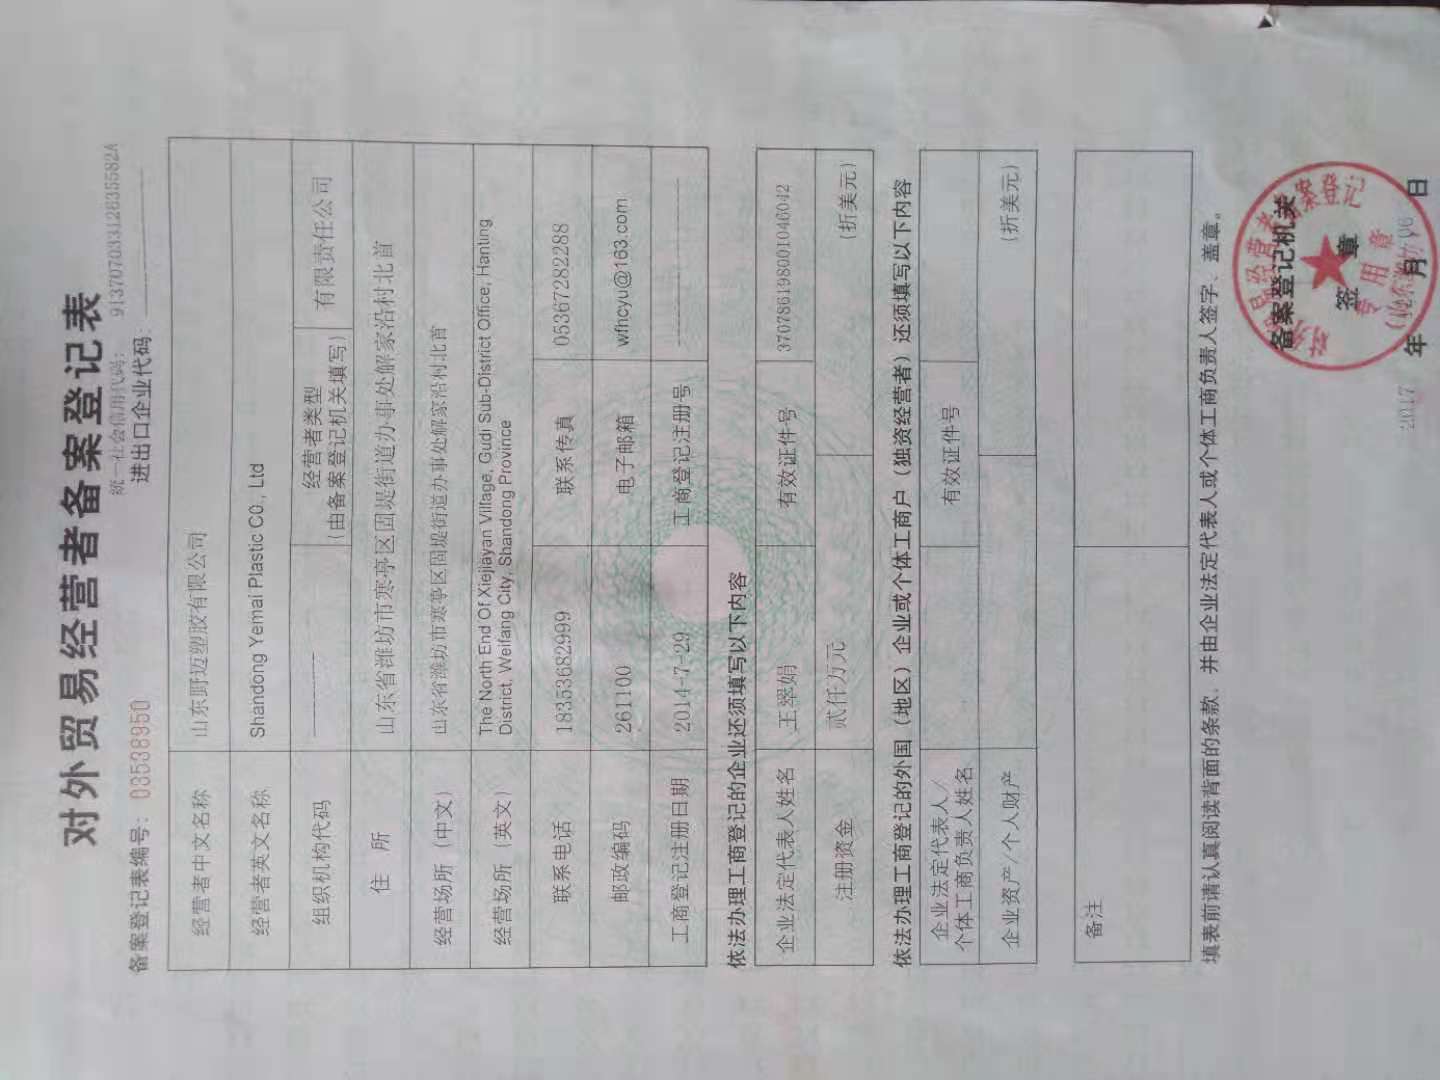 对外贸易经营者备案登记表
统一社会信用代码: 91370703312635582A
备案登记表编号: 03538950 进出口企业代码:
经营者中文名称 山东野迈塑胶有限公司
经营者英文名称 Shandong Yemai Plastic C0., Ltd
组织机构代码 经营者类型 有限责任公司
(由备案登记机关填写)
住 所 山东省潍坊市寒亭区固堤街道办事处解家沿村北首
经营场所(中文) 山东省潍坊市寒亭区固堤街道办事处解家沿村北首
经营场所(英文) The North End Of Xiejiayan Village, Gudi Sub-District Office, Hanting
District, Weifang City, Shandong Province
联系电话 18353682999 联系传真 05367282288
邮政编码 261100 电子邮箱 wfhcyu@163.com
工商登记注册日期 2014-7-29 工商登记注册号
依法办理工商登记的企业还须填写以下内容
企业法定代表人姓名 王翠娟 有效证件号 370786198001046042
注册资金 贰仟万元 (折美元)
依法办理工商登记的外国(地区)企业或个体工商户(独资经营者)还须填写以下内容
企业法定代表人/ 有效证件号
个体工商负责人姓名
企业资产/个人财产 (折美元)
备注
填表前请认真阅读背面的条款,并由企业法定代表人或个体工商负责人签字、盖章。
备案登记机关
签 章
2017 年 月 日
对外贸易经营者备案登记
专用章